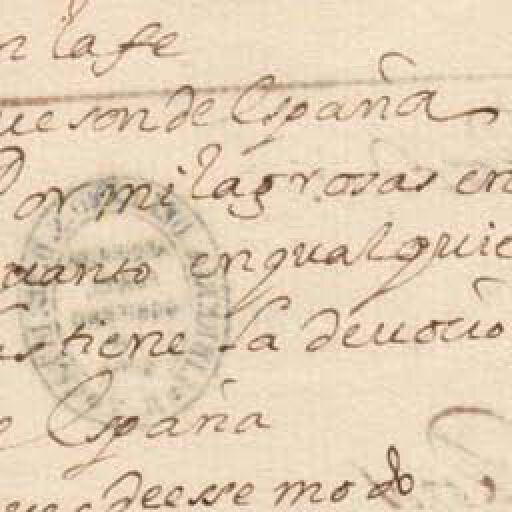 n la fe
ue son de España
Por milagrosas en
quanto en qualquie
as tiene la deuoçio
e España
deesse modo